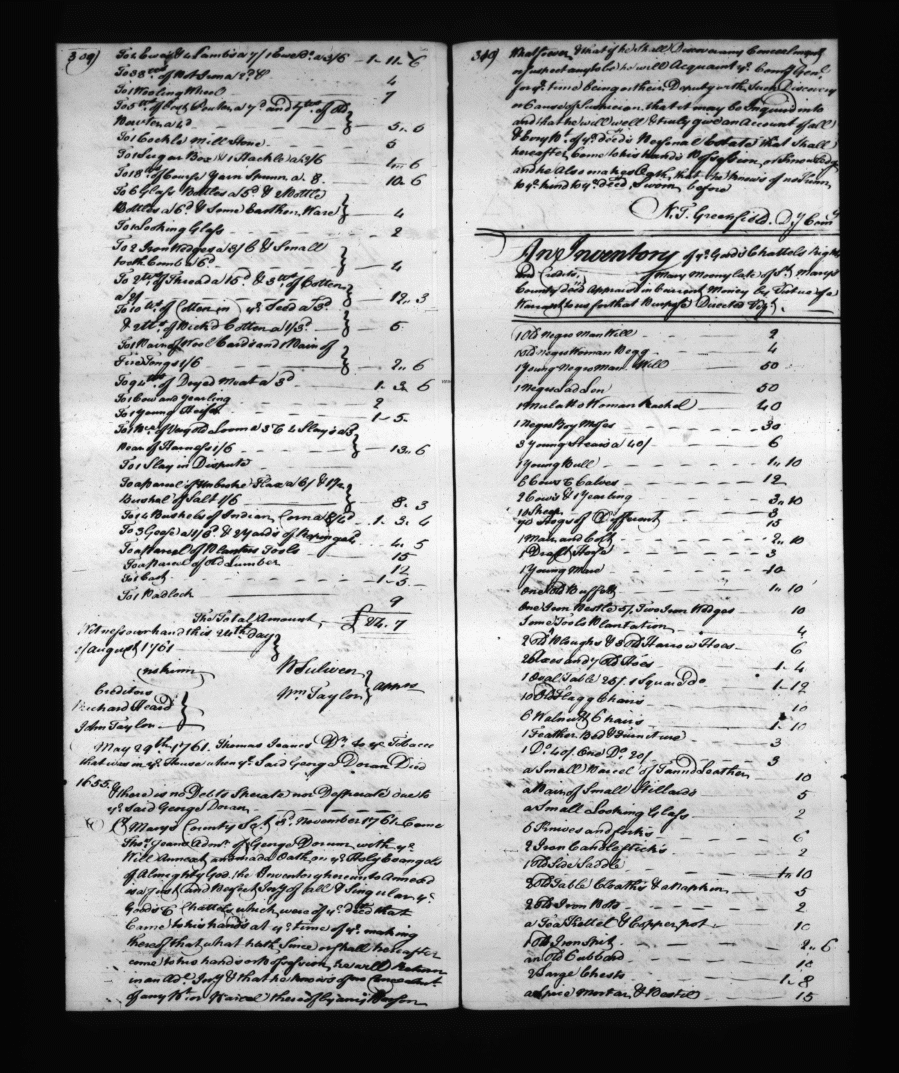 339)
To 2 Ewes & 4 Lambs a 7/ 1 Ewe Do. a 3/6 1 - 11 - 6
To 38 of Pot Iron a 4
To 1 Wooling Wheel 7
To 5 of best Pewter a 4d and 4 of old
Pewter a 4d 5 .. 6
To 1 Cockle Mill Stone 5
To 1 Sugar Box & 1 Hackle a 2/6 4 .. 6
To 18 of Course Yarn Spunn a 8 10 .. 6
To 6 Glass Bottles a 5d & 2 Bottle
Bottles a 6d & Some Earthen Ware 4
To 1 Looking Glass 2
To 2 Iron Wedges a 3/6 & Small
tooth Comb a 6d 4
To 2 of Thread a 15d & 3 of Cotten
a 2/ 12 .. 3
To 10 lb of Cotten in ye. Seed a 3d
& 2 of Pick'd Cotten a 1/3d 6
To 1 Pair of Wool Cards and 1 Pair of
Fire Tongs 1/6 2 .. 6
To 94 of Dryed Meat a 3d 1 .. 3 .. 6
To 1 Cow and yearling 2
To 1 Young Heifer 1 - 5
To 1 of Very Old Loom a 3 & 4 Slays a 3
Pear of Harness 1/6 13 .. 6
To 1 Slay in Dispute
To a parcel of Unbroke Flax a 6/ & 1/2
Bushel of Salt 1/6 8 .. 3
To 14 Bushels of Indian Corn a 1/8d 1 .. 3 .. 4
To 3 Geese a 1/6 & 2 Yards of 4 .. 5
To a parcel of Planters Tools 15
To a parcel of Old Lumber 12
To 1 Cask 1 - 5
To 1 Padlock 9
The Total Amount £24 .. 7
Witness our hand this 24th day
of August 1761
no kinn
Creditors
Richard Heard
John Taylor
N Sulwen
Wm Taylor
Appres
May 29th 1761 Thomas Jeanes Dr. to ye Tobacco
that was in ye House when ye Said George Doran Died
1655.
There is no Debts Sperate nor Desperate due to
ye said George Doran
St Marys County Sct. 3d. November 1761 Came
Thos. Jeanes Admr. of George Doran with ye.
Will Annext an made Oath on ye Holy Evangels
of Almighty God the Inventory hereunto Annexed
is a Just and Perfect Invy of all & Singular ye.
Goods & Chattels which were of ye decd that
Came to his hands at ye time of ye making
thereof that what hath Since or shall hereafter
come to his hands or Possession, he will Return
in an Adl. Invy & that he knows of no Concealment
of any Pt. or Parcel thereof by any Person
340)
Whatsoever & that if he Shall Discover any Concealment
or suspect any to be he will Acquaint ye. Comy Genl.
for ye. time being or their Deputy with Such Discovery
or Cause of Suspicion that it may be Inquired into
and that he will well & truly give an Account of all
& Every Pt. of ye decd's Personal Estate that Shall
hereafter come to his hands Possession or knowledge
and he Also makes Oath, that he knows of no
to ye kind to ye decd. Sworn before
N. T. Greenfield. Dy Comy
An Inventory of ye. Goods Chattels Rights
and Credits of Mary Mooney late of St. Marys
County decd Appraised in Current Money by Virtue of a
Warrant to us for that Purpose Directed Vizt.
1 Old Negro Man Will 2
1 Old Negro Woman Pegg 4
1 Young Negro Man Will 50
1 Negro Lad Len 50
1 Mulatto Woman Rachel 40
1 Negro Boy Moses 30
3 Young Stears a 40/ 6
1 Young Bull 1 .. 10
6 Cows & Calves 12
2 Cows & 1 Yearling 3 .. 10
10 Sheep 3
40 Hogs of Different 15
1 Mare and Colt 2 .. 10
1 Draft Horse 3
1 Young Mare 10
One Old Buffett 1 .. 10
One Iron Pestle 5/. Two Iron Wedges 10
Some Tools Plantation 4
2 Old Ploughs & 3 Old Harrow Hoes 6
2 Axes and 4 Old Hoes 1 - 4
1 Oval Table 25/. 1 Square do 1 - 12
10 Old Flagg Chairs 10
6 Walnut Chairs 1 - 10
1 Feather Bed & Furniture 3
1 Do. 40/. One Do. 20/. 3
a Small Parcel of Tann'd Leather 10
a Pair of Small Stillards 5
a Small Looking Glass 2
6 Knives and forks 6
2 Iron Candlesticks 2
1 Old Side Saddle 1 .. 10
3 Old Table Cloaths & a Napkin 5
2 Old Iron Pots 2
a Tea Kettel & Copper pot 10
1 Old Iron Spit 2 .. 6
an Old Cubbard 10
2 Large Chests 1 - 8
a Spice Mortar & Pestel 15